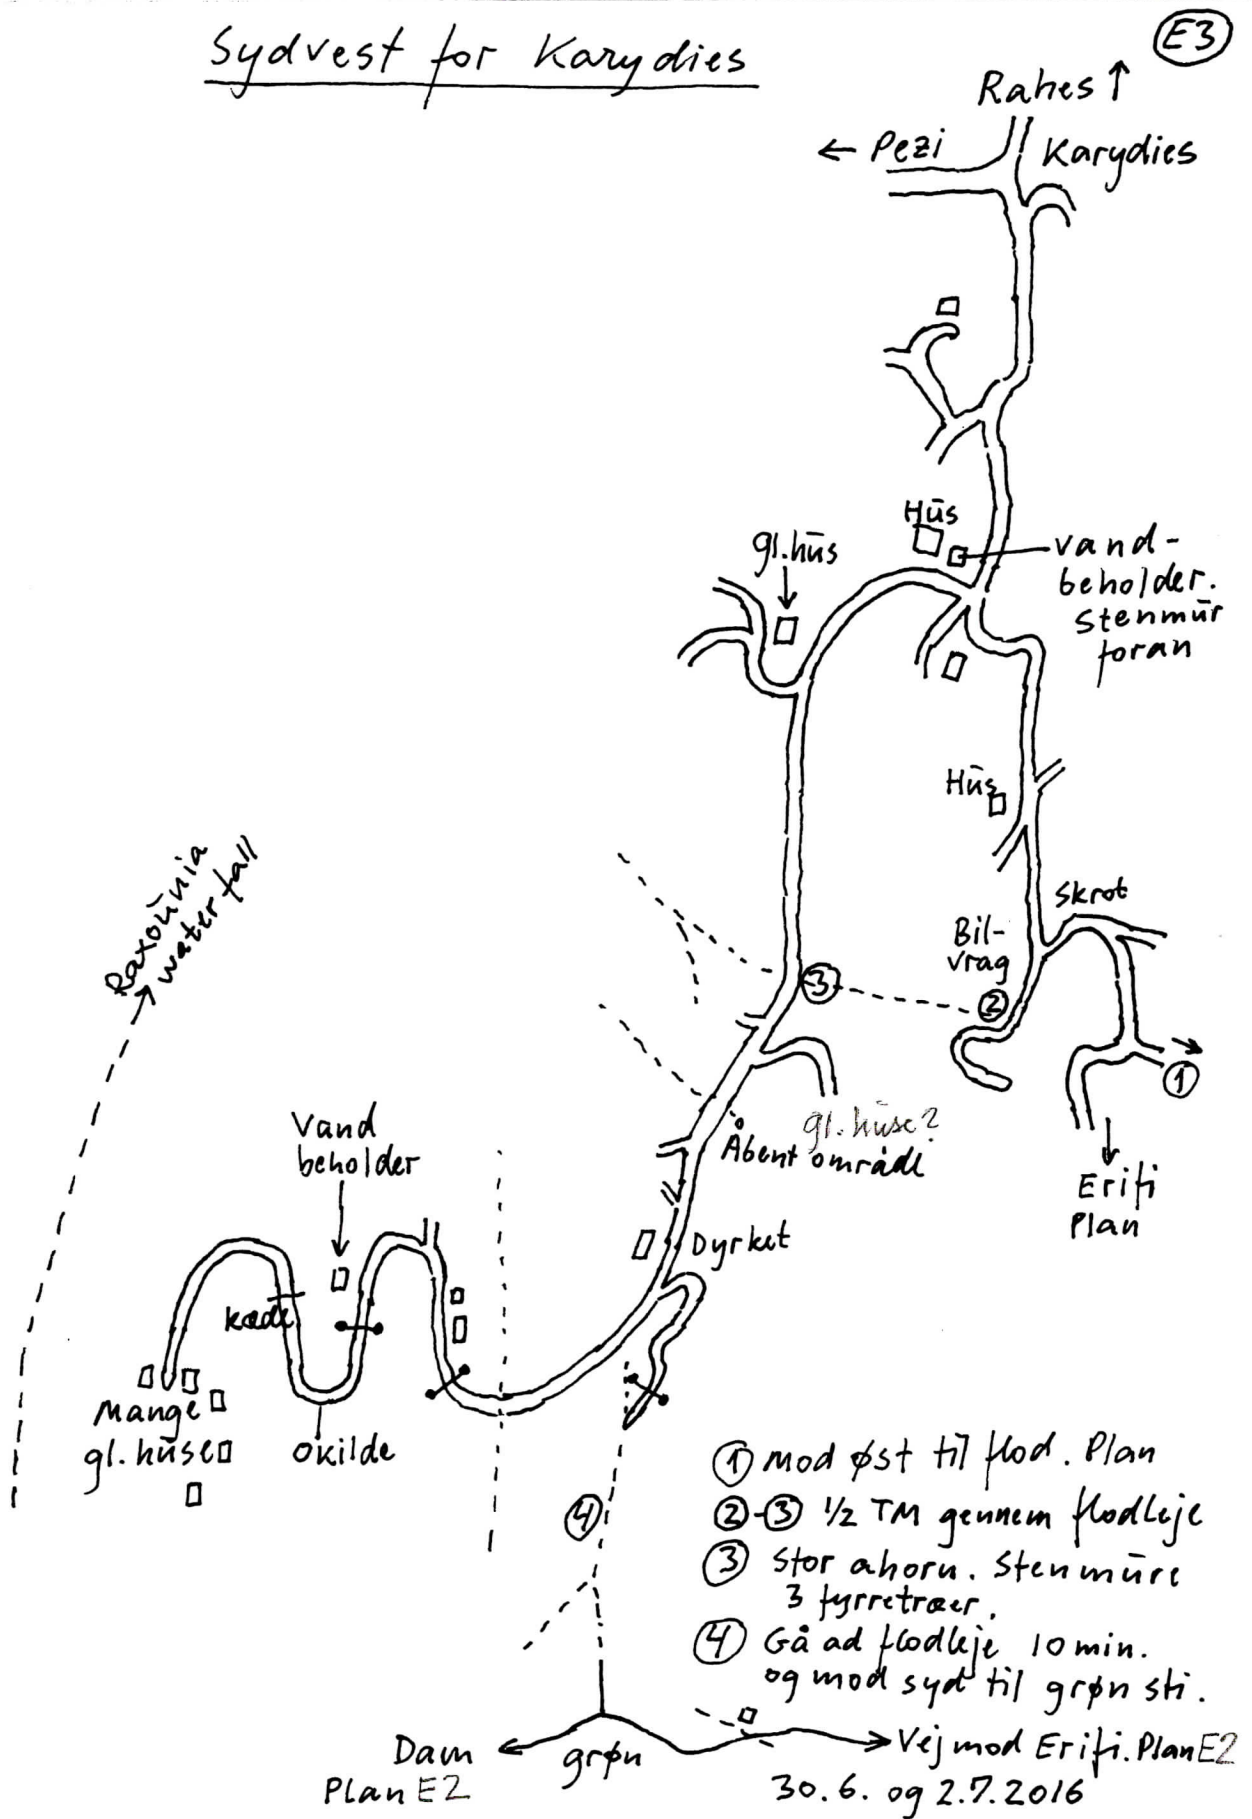 Sydvest for Karydies
E3
Rahes ↑
← Pezi
Karydies
Hus
gl.hus
vand-
beholder.
Stenmur
foran
Hus
Raxounia
waterfall
Skrot
Bil-
vrag
3
2
1
gl. huse?
Åbent område
Vand
beholder
Erifi
Plan
Dyrket
kæde
Mange
gl.huse
okilde
① mod øst til flod. Plan
②-③ 1/2 TM gennem flodleje
③ Stor ahorn. Stenmure
3 fyrretræer.
④ Gå ad flodleje 10 min.
og mod syd til grøn sti.
4
Dam
Plan E2
grøn
Vej mod Erifi. Plan E2
30.6. og 2.7.2016